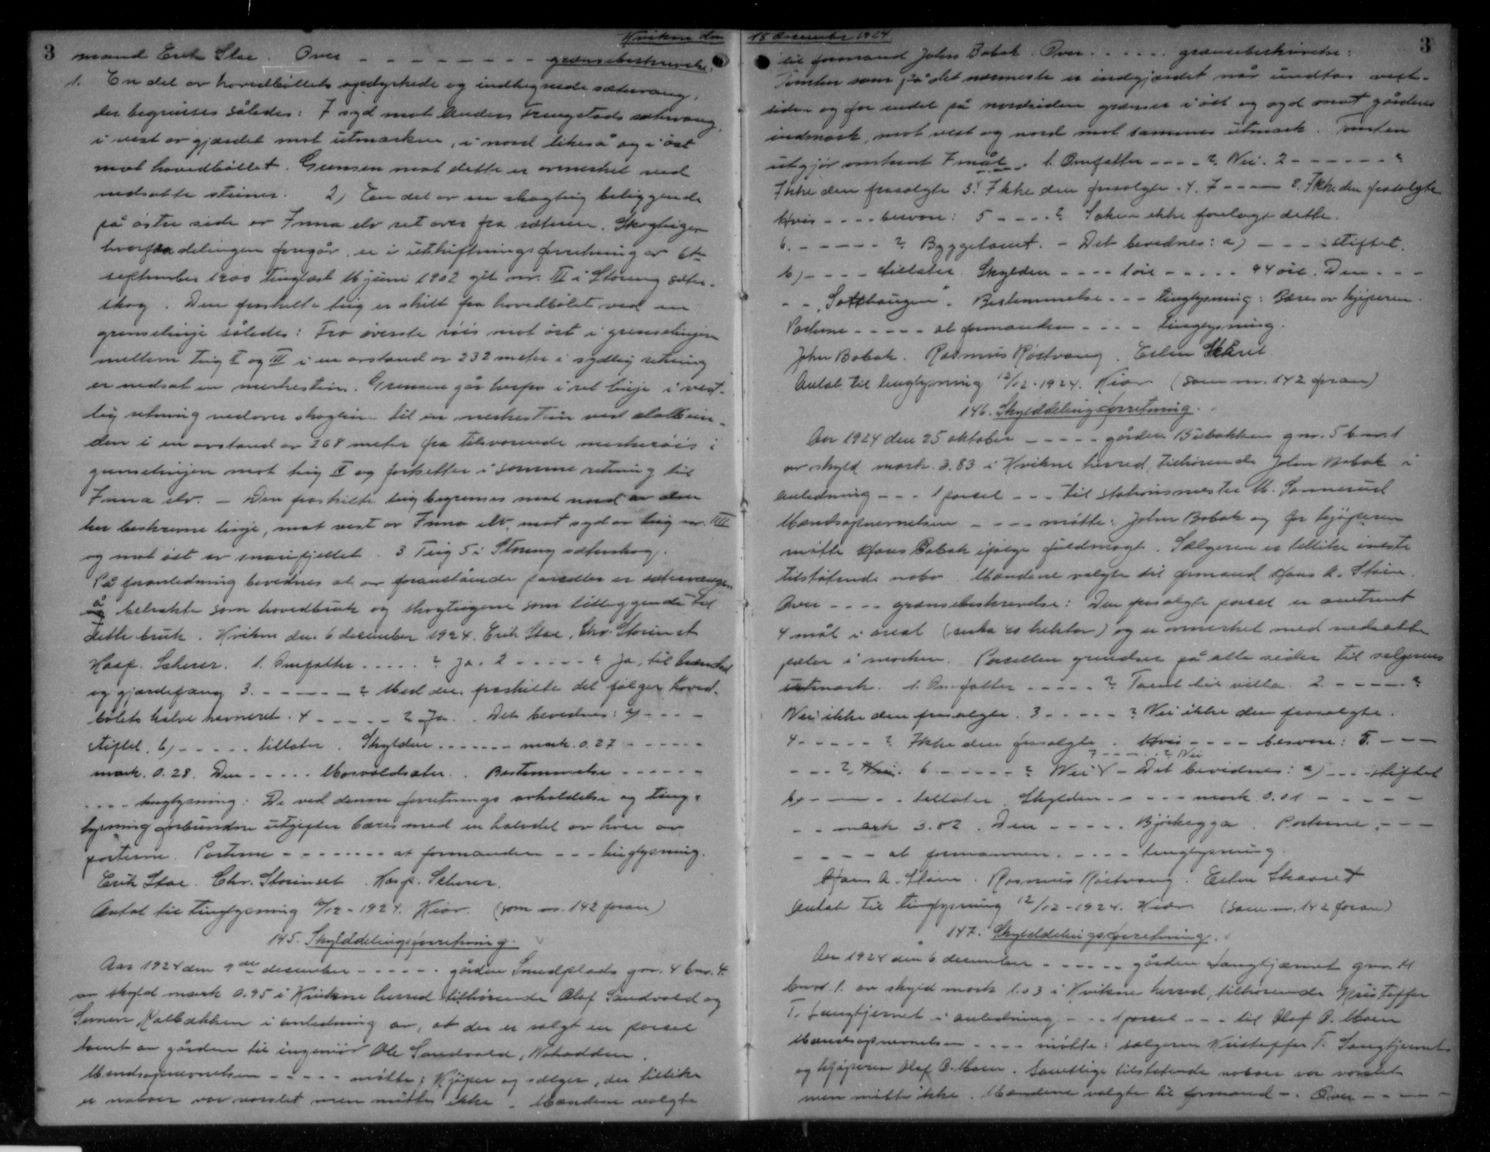 Kvikne den 15 december 1924
3
mand Erik Stae. Over - - - - - - - - - grænsebeskrivelse:
1. En del av hovedbøllets opdyrkede og indhegnede sætervang,
der begrænses således: I syd mot Anders Frengstads sætervang,
i vest av gjærdet mot utmarken, i nord likeså og i øst
mot hovedbøllet. Grensen mot dette er avmerket med
nedsatte steiner. 2) En del av en skogteig beliggende
på østre side av Inna elv ret over fra sæteren. Skogteigen
hvorfra delingen foregår, er i utskiftningsforretning av 6te
september 1900 tinglæst 16 juni 1902 git nr. III i Storeng sæter-
skog. Den fraskilte teig er skilt fra hovedbølet ved en
grenselinje således: Fra øverste røis mot øst i grenselinjen
mellem teig I og III i en avstand av 232 meter i sydlig retning
er nedsat en merkestein. Grensen går herfra i ret linje i vest-
lig retning nedover skogteien til en merkestein ved slottein-
den i en avstand av 268 meter fra tilsvarende merkerøis i
grenselinjen mot teig II og fortsetter i samme retning til
Inna elv. - Den fraskilte teig begrenses mot nord av den
her beskrevne linje, mot vest av Inna elv, mot syd av teig nr. III
og mot øst av snaufjellet. 3 Teig 5 i Storeng sæterskog.
På foranledning bevidnes at av foranstående parseller er sætervangen
å betrakte som hovedbruk og skogteigene som tilleggende til
dette bruk. Kvikne den 6 december 1924. Erik Stae. Chr. Storinset
Hasp. Scherer. 1. Omfatter - - - - - ? Ja. 2 - - - - - ? Ja, til brænsel
og gjærdefang 3. - - - - - - ? Med den fraskilte del følger hoved-
bølets halve havneret. 4 - - - - - ? Ja. Det bevidnes: a) - - - -
stiftet. b) - - - - - tillater. Skylden - - - - - - mark 0.27 - - - - - -
mark. 0.28. Den - - - - - Mosvoldsæter. Bestemmelse - - - - - -
- - - - tinglysning: De ved denne forretnings avholdelse og ting-
lysning forbundne utgifter bæres med en halvdel av hver av
parterne. Partene - - - - - - - at formanden - - - tinglysning.
Erik Stae. Chr. Storinset. Hasp. Scherer.
Antat til tinglysning 9/12 - 1924. Kiær. (som nr. 142 foran)
145. Skylddelingsforretning.
Aar 1924 den 9de december - - - - - - gården Smedplads gnr. 4 bnr. 4
av skyld mark 0.95 i Kvikne herred tilhørende Olaf Sandvold og
Simen Kalbækken i anledning av, at der er solgt en parsel
tomt av gården til ingeniør Ole Sandvold, Notodden.
Mandsopnevnelsen - - - - - møtte: Kjøper og sælger, der tillike
er naboer var varslet men møtte ikke. Mændene valgte
3
til formand John Bobak. Over - - - - - grænsebeskrivelse:
Tomten som på det nærmeste er indgjærdet når undtas vest-
siden og for endel på nordsiden grænser i øst og syd mot gårdens
indmark, mot vest og nord mot sammes utmark. Tomten
utgjør omtrent 7 mål. 1. Omfatter - - - - ? Nei. 2 - - - - - - ?
Ikke den frasolgte 3. Ikke den frasolgte. 4. ? - - - - ? Ikke den frasolgte
Hvis - - - - besvare: 5 - - - - ? Saken ikke forelagt dette.
6. - - - - - - ? Byggetomt. - Det bevidnes: a) - - - - stiftet.
b) - - - - tillater. Skylden - - - - 1 øre - - - - - 94 øre. Den - - -
- - "Solthaugen". Bestemmelse - - - tinglysning: Bæres av kjøperen.
Partene - - - - - at formanden - - - - tinglysning.
John Bobak. Rasmus Røstvang. Eilen Skåret
Antat til tinglysning 12/12 - 1924. Kiær (som nr. 142 foran)
146. Skylddelingsforretning.
Aar 1924 den 25 oktober - - - - - gården Bubakken gnr. 5 bnr. 1
av skyld mark 3.83 i Kvikne herred, tilhørende John Bobak i
anledning - - - 1 parsel - - - til stationsmester M. Sannerud
Mandsopnevnelsen - - - - møtte: John Bobak og for kjøperen
møtte Hans Bobak ifølge fuldmagt. Sælgeren er tillike eneste
tilstøtende nabo. Mændene valgte til formand Hans A. Støen.
Over - - - - grænsebeskrivelse: Den frasolgte parsel er omtrent
4 mål i areal (cirka 40 hektar) og er avmerket med nedsatte
pæler i marken. Parsellen grændser på alle sider til selgerens
utmark. 1. Omfatter - - - - - ? Tomt til villa. 2 - - - - - ?
Nei ikke den frasolgte. 3 - - - - - ? Nei ikke den frasolgte.
4 - - - - - ? Ikke den frasolgte. Hvis - - - - besvare: 5. - - -
? - - - - - ? Nei
- - - ? Nei. 6 - - - - - ? Nei - Det bevidnes: a) - - - stiftet
b) - - - - - tillater. Skylden - - - - - mark 0.01 - - - - -
- - mark 3.82. Den - - - - - Bjørkegga. Partene - - -
- - - - - at formannen - - - - - tinglysning.
Hans A. Støen. Rasmus Røstvang. Eilen Skaaret
Antat til tinglysning 12/12 - 1924. Kiær (som nr. 142 foran)
147. Skylddelingsforretning.
Aar 1924 den 6 december - - - - - - gården Langtjærnet gnr. 11
bnr. 1. av skyld mark 1.03 i Kvikne herred, tilhørende Kristoffer
T. Langtjernet i anledning - - - 1 parsel - - - til Olof O. Moen
Mandsopnevnelsen - - - - møtte: sælgeren Kristoffer T. Langtjernet
og kjøperen Olof O. Moen. Samtlige tilstøtende naboer var varslet
men møtte ikke. Mændene valgte til formand -. Over - - - - -